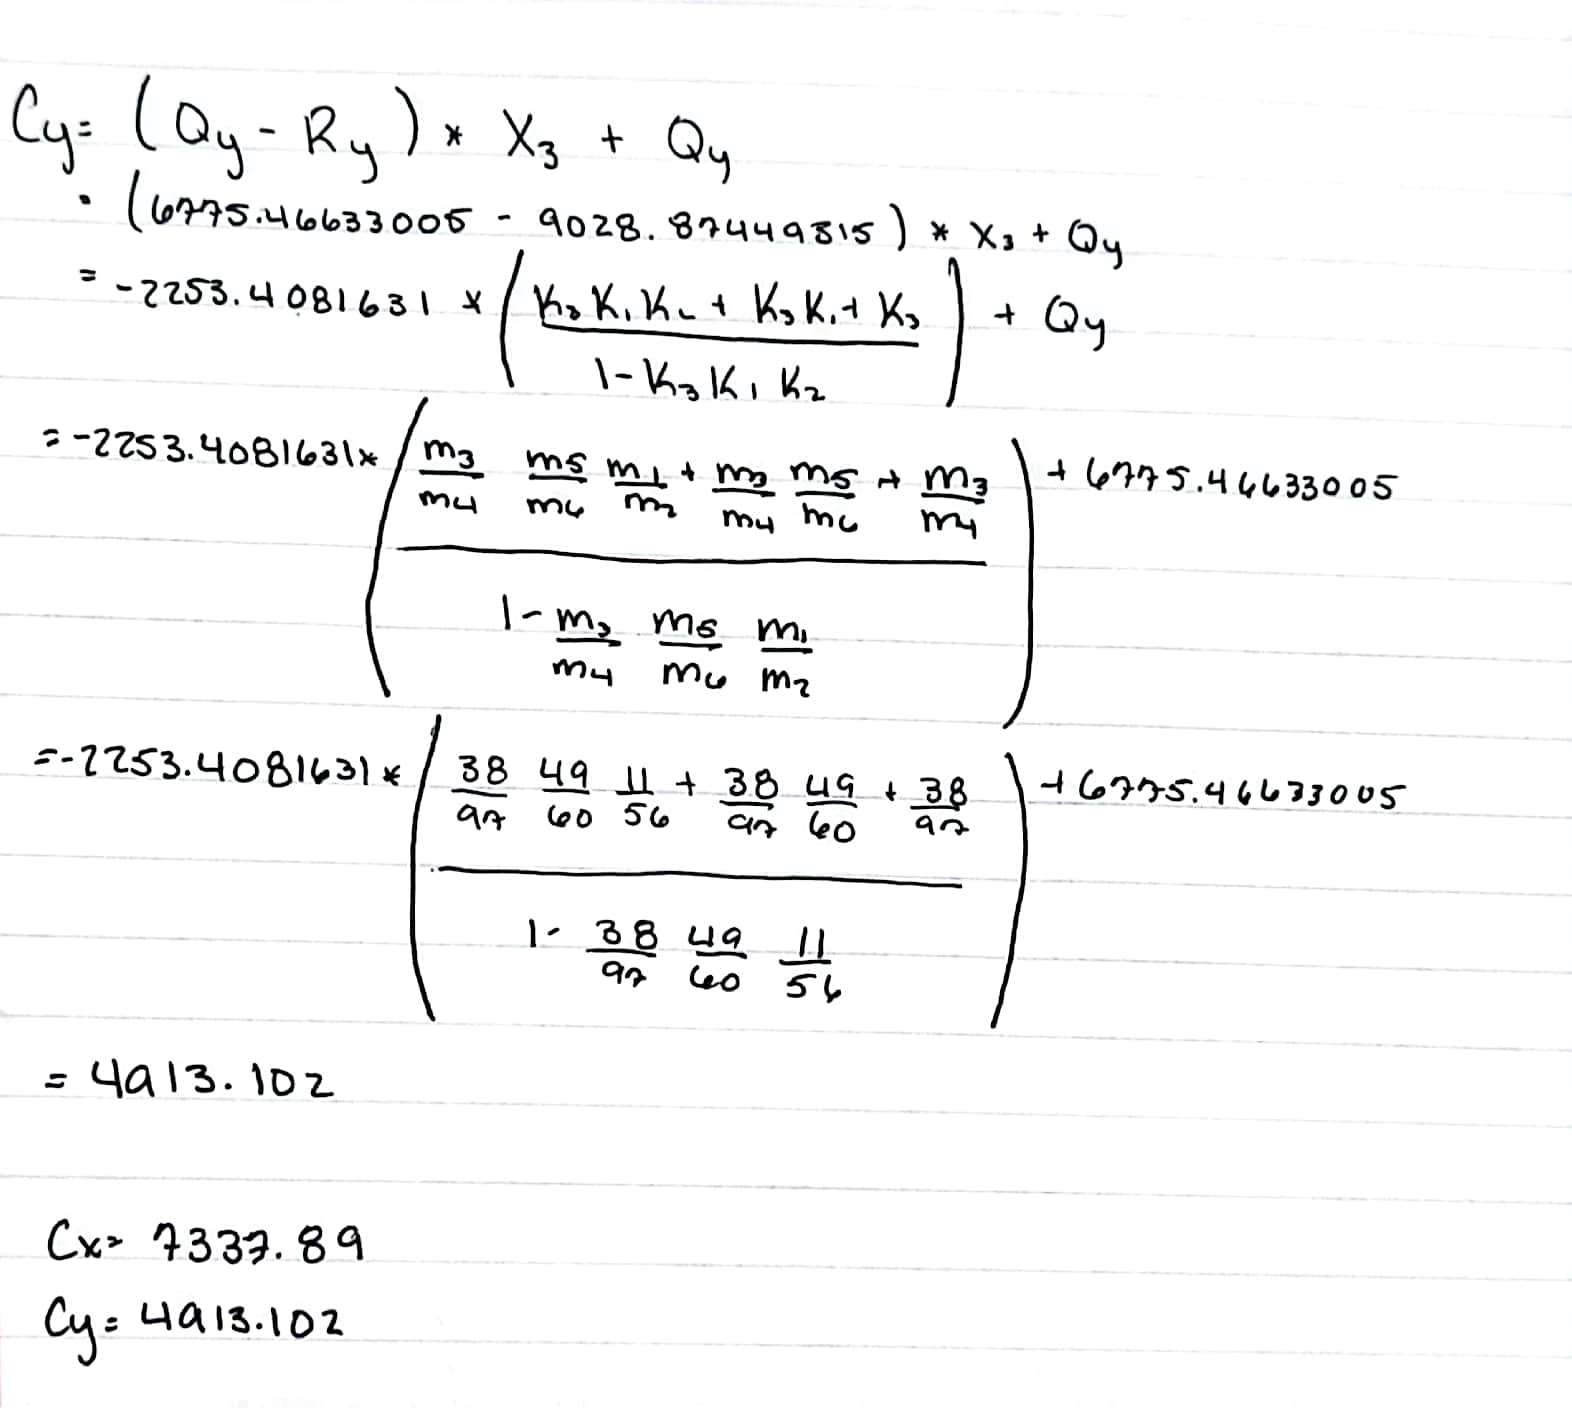 Cy= (Qy - Ry) * X3 + Qy
= (6775.46633005 - 9028.87449315) * X3 + Qy
= -2253.4081631 * (K3 K1 K2 + K3 K1 + K3 / 1 - K3 K1 K2) + Qy
= -2253.4081631 * (m3/m4 m5/m6 m1/m2 + m3/m4 m5/m6 + m3/m4 / 1 - m3/m4 m5/m6 m1/m2) + 6775.46633005
= -2253.4081631 * (38/97 49/60 11/56 + 38/97 49/60 + 38/97 / 1 - 38/97 49/60 11/56) + 6775.46633005
= 4913.102
Cx= 7337.89
Cy= 4913.102